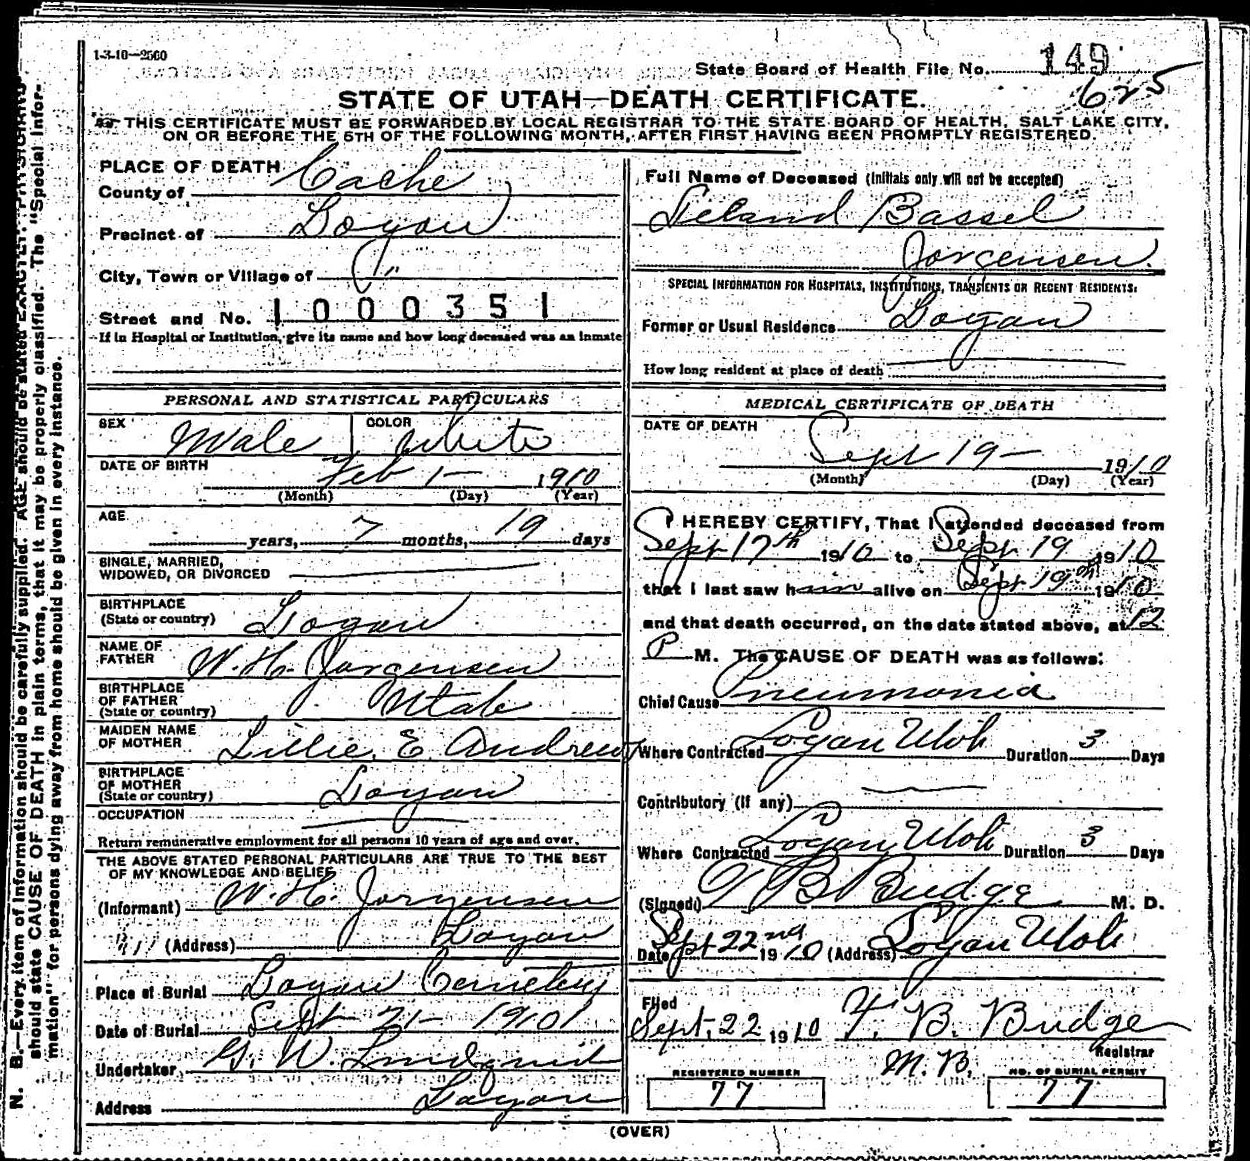 1-3-10—2560
State Board of Health File No. 149
625
STATE OF UTAH—DEATH CERTIFICATE.
THIS CERTIFICATE MUST BE FORWARDED BY LOCAL REGISTRAR TO THE STATE BOARD OF HEALTH, SALT LAKE CITY,
ON OR BEFORE THE 5TH OF THE FOLLOWING MONTH, AFTER FIRST HAVING BEEN PROMPTLY REGISTERED.
PLACE OF DEATH
County of Cache
Precinct of Logan
City, Town or Village of "
Street and No. 1000351
If in Hospital or Institution, give its name and how long deceased was an inmate
PERSONAL AND STATISTICAL PARTICULARS
SEX Male COLOR White
DATE OF BIRTH Feb 1— 1910
(Month) (Day) (Year)
AGE
years, 7 months, 19 days
SINGLE, MARRIED,
WIDOWED, OR DIVORCED
BIRTHPLACE
(State or country) Logan
NAME OF
FATHER W. H. Jorgensen
BIRTHPLACE
OF FATHER
(State or country) Utah
MAIDEN NAME
OF MOTHER Lillie E Andrews
BIRTHPLACE
OF MOTHER
(State or country) Logan
OCCUPATION
Return remunerative employment for all persons 10 years of age and over.
THE ABOVE STATED PERSONAL PARTICULARS ARE TRUE TO THE BEST
OF MY KNOWLEDGE AND BELIEF
(Informant) W. H. Jorgensen
(Address) Logan
Place of Burial Logan Cemetery
Date of Burial Sept 21— 1910
Undertaker G. W. Lindquist
Address Logan
Full Name of Deceased (Initials only will not be accepted)
Leland Bassel
Jorgensen.
SPECIAL INFORMATION FOR HOSPITALS, INSTITUTIONS, TRANSIENTS OR RECENT RESIDENTS:
Former or Usual Residence Logan
How long resident at place of death
MEDICAL CERTIFICATE OF DEATH
DATE OF DEATH
Sept 19— 1910
(Month) (Day) (Year)
I HEREBY CERTIFY, That I attended deceased from
Sept 17th 1910 to Sept 19 1910
that I last saw him alive on Sept 19th 1910
and that death occurred, on the date stated above, at 12
P M. The CAUSE OF DEATH was as follows:
Chief Cause Pneumonia
Where Contracted Logan Utah Duration 3 Days
Contributory (If any)
Where Contracted Logan Utah Duration 3 Days
(Signed) T B Budge M. D.
Date Sept 22nd 1910 (Address) Logan Utah
Filed
Sept. 22 1910 F. B. Budge
M. D. Registrar
REGISTERED NUMBER
77
NO. OF BURIAL PERMIT
77
(OVER)
N. B.—Every item of information should be carefully supplied. AGE should be stated EXACTLY. PHYSICIANS
should state CAUSE OF DEATH in plain terms, that it may be properly classified. The "Special Infor-
mation" for persons dying away from home should be given in every instance.